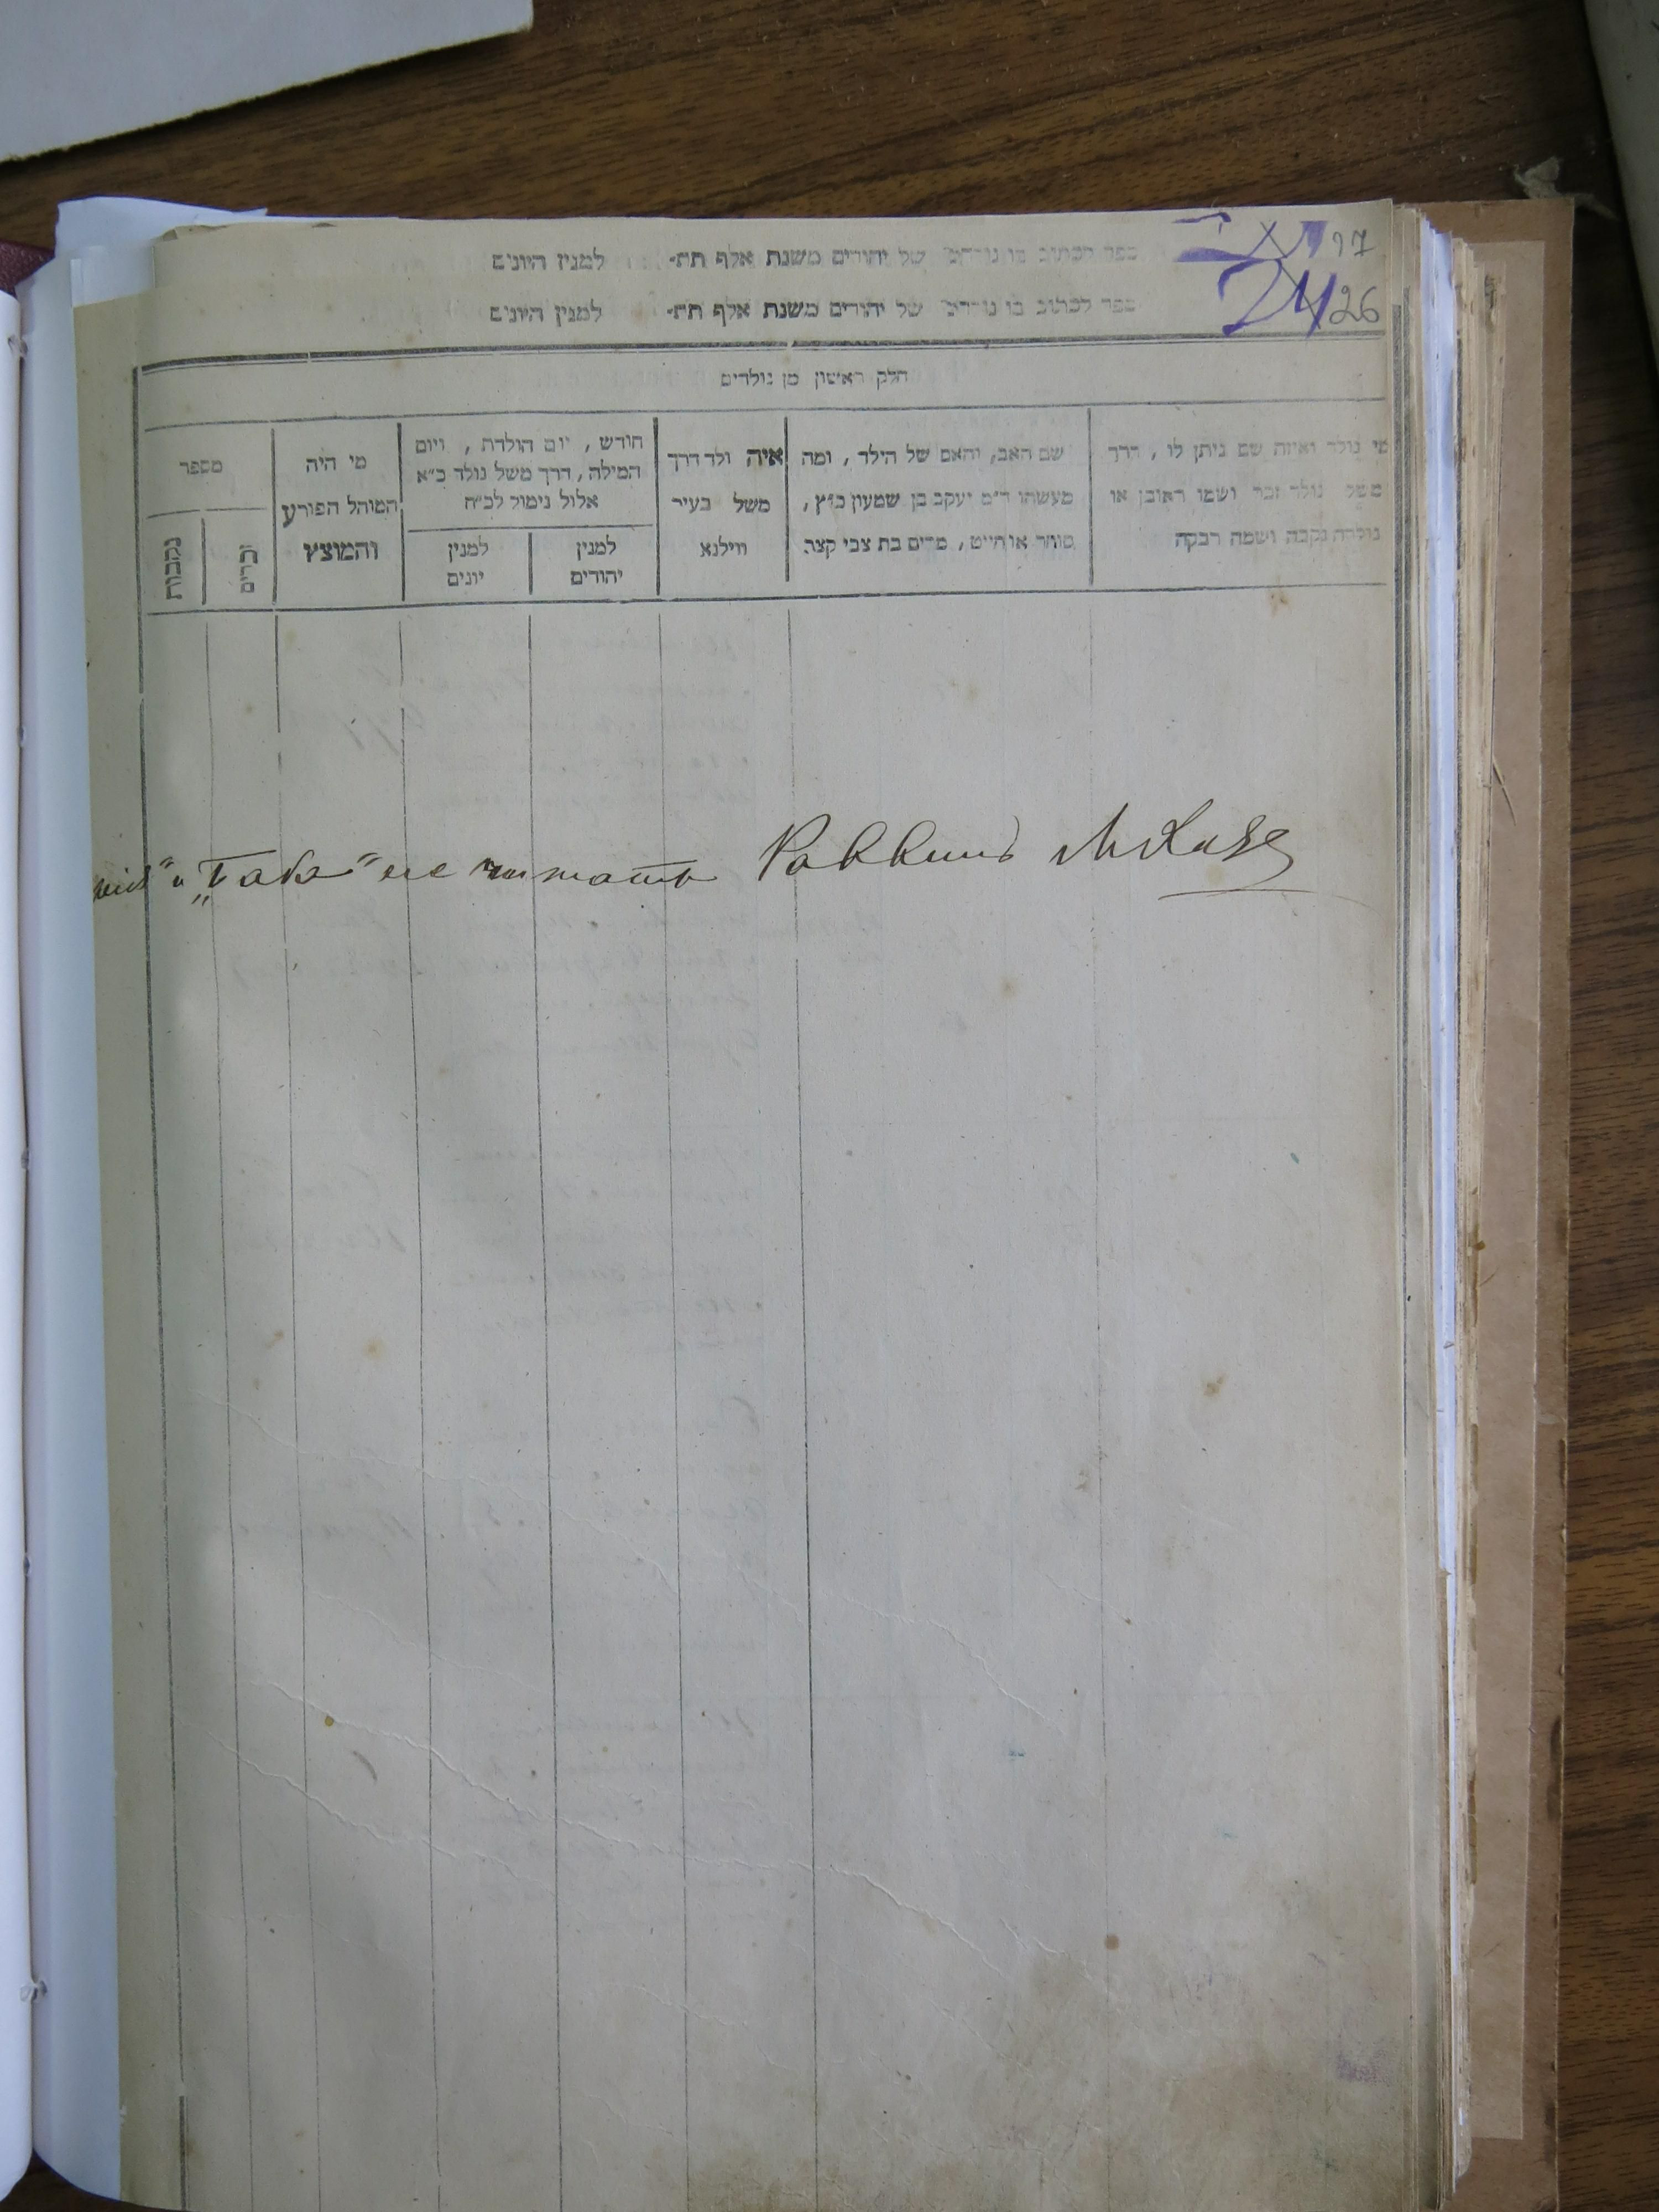 17
26
ספר לכתוב בו נולדים של יהודים משנת אלף תת- למנין היונים
ספר לכתוב בו נולדים של יהודים משנת אלף תת- למנין היונים
חלק ראשון מן נולדים
מי נולד ואיזה שם ניתן לו, דרך
משל נולד זכר ושמו ראובן או
נולדה נקבה ושמה רבקה
שם האב, והאם של הילד, ומה
מעשהו ד״מ יעקב בן שמעון כ״ץ,
סוחר או חייט, מרים בת צבי קצב
איה ולד דרך
משל בעיר
ווילנא
חודש, יום הולדת, ויום
המילה, דרך משל נולד כ״א
אלול נימול לכ״ח
למנין
יהודים
למנין
יונים
מי היה
המוהל הפורע
והמוצץ
מספר
זכרים
נקבות
и „Габ“ не читать Раввинъ